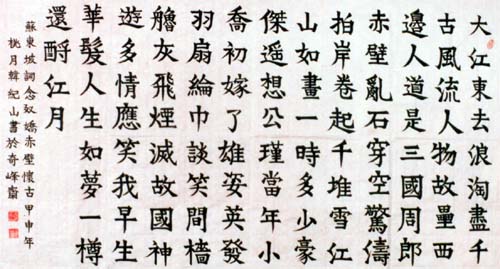 大江東去浪淘盡千
古風流人物故壘西
邊人道是三國周郎
赤壁亂石穿空驚濤
拍岸卷起千堆雪江
山如畫一時多少豪
傑遥想公瑾當年小
喬初嫁了雄姿英發
羽扇綸巾談笑間檣
艪灰飛煙滅故國神
遊多情應笑我早生
華髮人生如夢一樽
還酹江月
蘇東坡詞念奴嬌赤壁懷古甲申年
桃月韓紀山書於奇峰齋